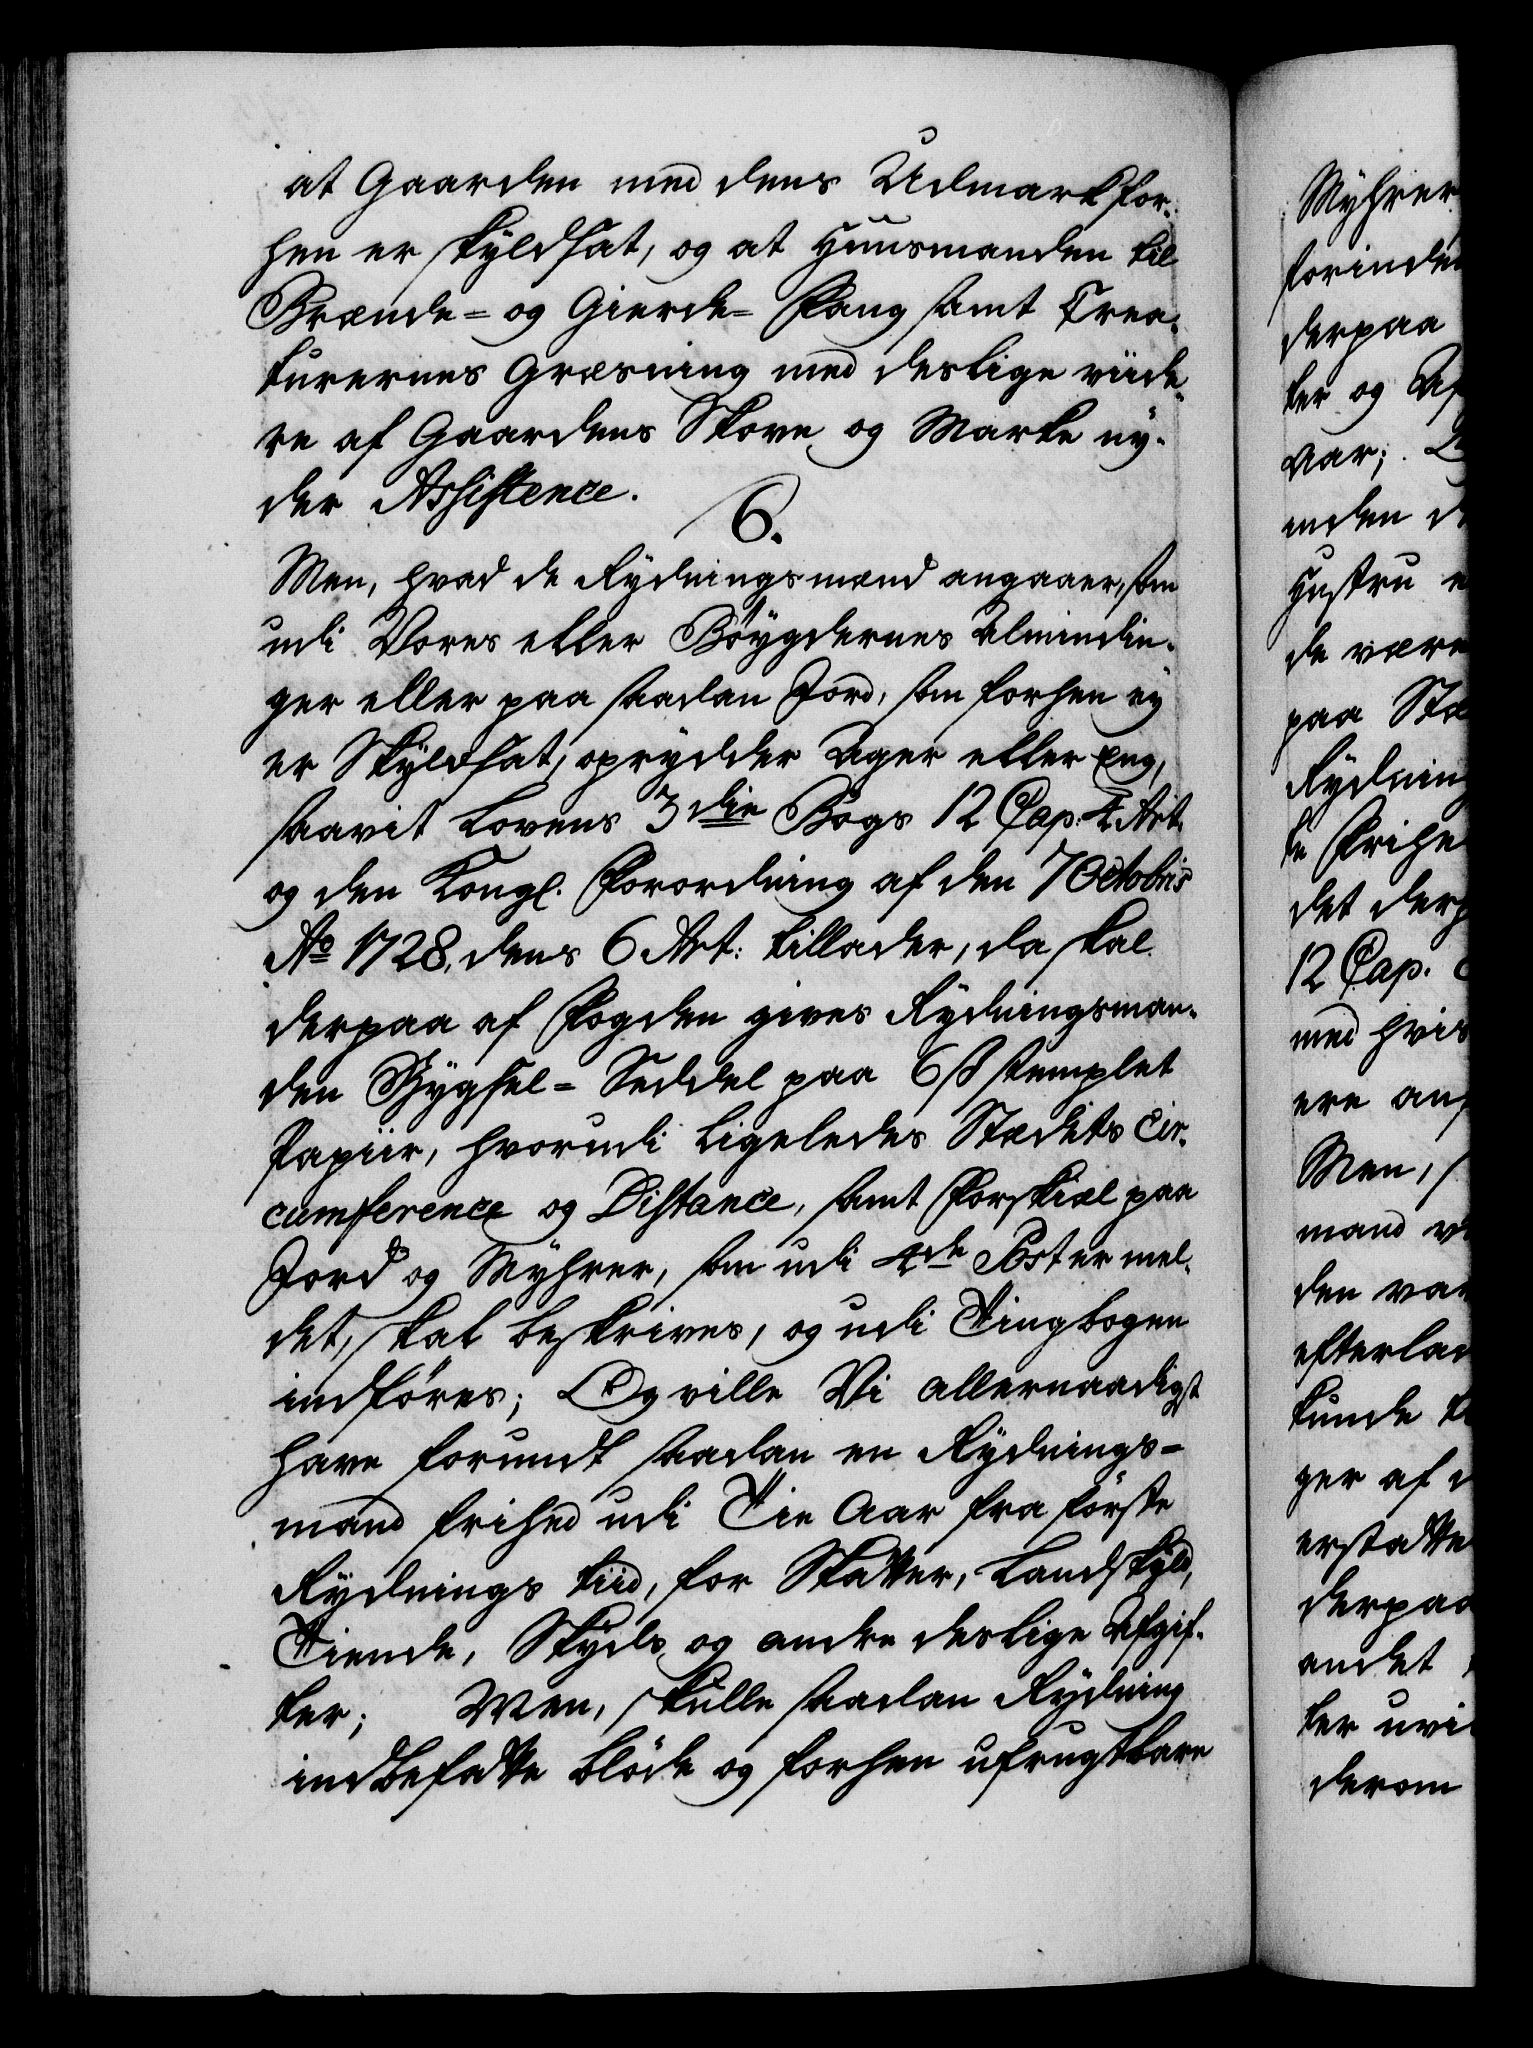 at Gaarden med dens Udmark for-
hen er skyldsat, og at Huusmanden til
Brænde- og Gierde- Fang samt Crea-
turernes Græsning med deslige viide-
re af Gaardens Skove og Marke ny-
der Assistence.
6.
Men, hvad de Rydningsmænd angaaer, som
udi Vores eller Bøygdernes Almindin-
ger eller paa saadan Jord, som forhen ey
er Skyldsat, oprydder Ager eller Eng,
saavit Lovens 3die Bogs 12 Cap: 4 Art.
og den Kongl. Forordning af den 7 Octobris
Ao 1728, dens 6 Art: tillader, da skal
derpaa af Fogden gives Rydningsman-
den Bygsel- Seddel paa 6 ß stemplet
Papiir, hvorudi ligeledes Stædets Cir-
cumference og Distance, samt Forskiæl paa
Jord og Myhrer, som udi 4de Post er mel-
det, skal beskrives, og udi Tingbogen
indføres; Og ville Vi allernaadigst
have forundt saadan en Rydnings-
mand frihed udi Tie Aar fra første
Rydnings tiid, for Skatter, Landskyld,
Tiende, Skyds og andre deslige Afgif-
ter; Men, skulle saadan Rydning
indbefatte bløde og forhen ufrugtbare
Myhrer
derpaa
ter og Af
var;
inden
Hustru
de være
paa
Rydning
det
12 Cap.
med hvis
ere
Men,
mand
den
efterlad
kunde
ger af
erstatte
derpaa
andet
ter
derom